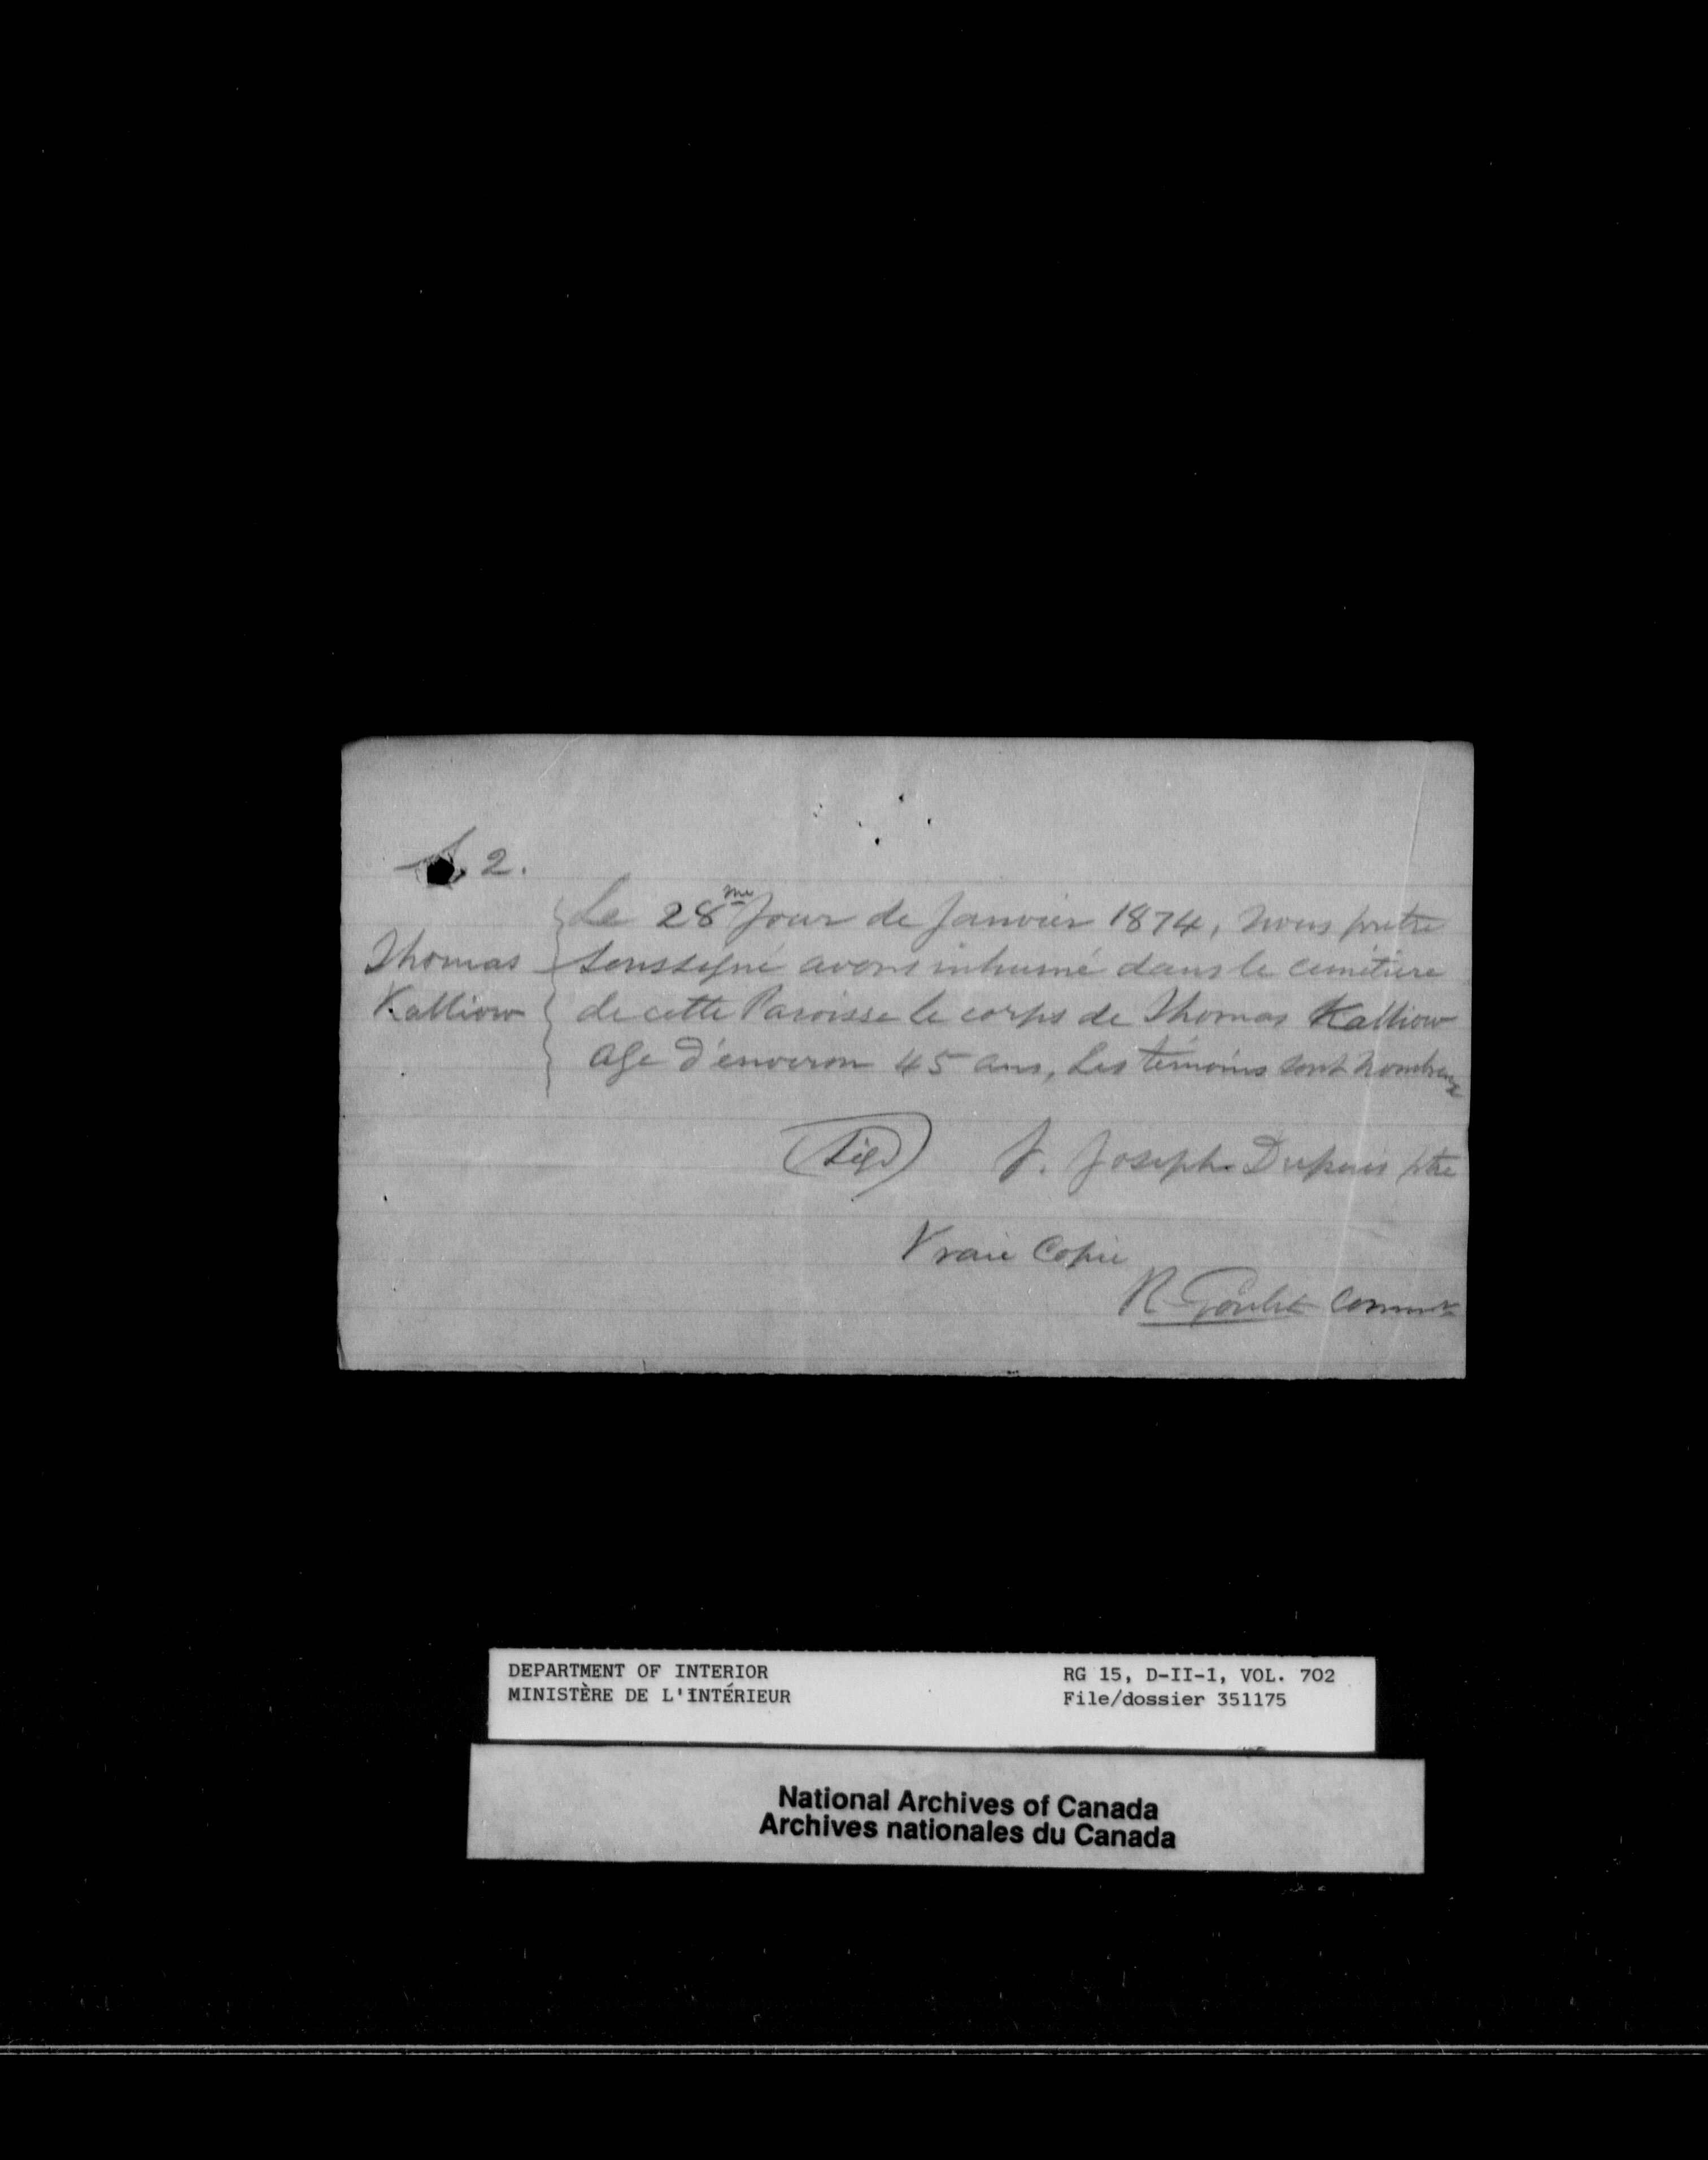 S. 2.
Le 28me Jour de Janvier 1874, nous pretre
Thomas soussigné avons inhumé dans le cimétiere
Kalliow de cette Paroisse le corps de Thomas Kalliow
age d'environ 45 ans, Les témoins sont nombreux
(Sigd) J. Joseph Dupuis ptre
Vraie Copie
R. Goulet Commr
DEPARTMENT OF INTERIOR RG 15, D-II-1, VOL. 702
MINISTÈRE DE L'INTÉRIEUR File/dossier 351175
National Archives of Canada
Archives nationales du Canada